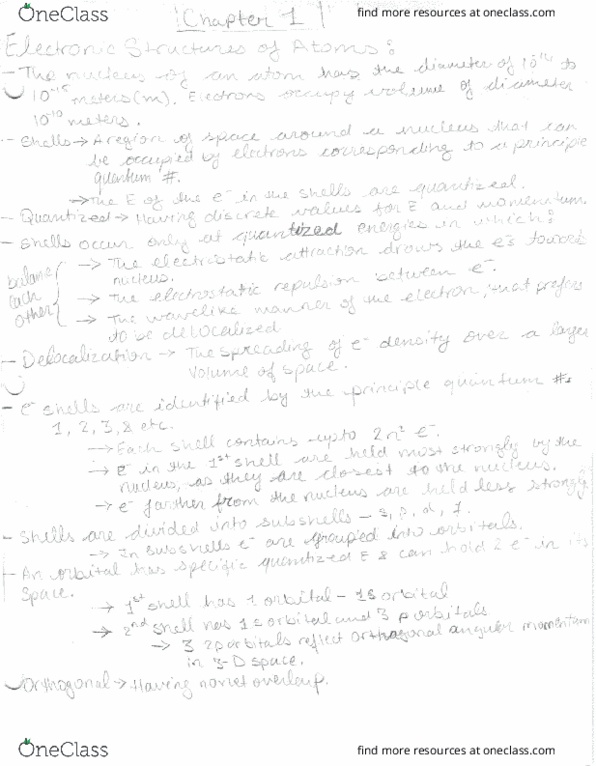 OneClass
find more resources at oneclass.com
Chapter 1
Electronic Structures of Atoms:
- The nucleus of an atom has the diameter of 10⁻¹⁴ to
10⁻¹⁵ meters (m). Electrons occupy volume of diameter
10⁻¹⁰ meters.
- Shells → A region of space around a nucleus that can
be occupied by electrons corresponding to a principle
quantum #.
→ The E of the e⁻ in the shells are quantized.
- Quantized → Having discrete values for E and momentum.
- Shells occur only at quantized energies in which:
balance each other
→ The electrostatic attraction draws the e⁻s towards
nucleus.
→ The electrostatic repulsion between e⁻.
→ The wavelike manner of the electron, that prefers
to be delocalized
- Delocalization → The spreading of e⁻ density over a larger
volume of space.
- e⁻ shells are identified by the principle quantum #s
1, 2, 3, 8 etc.
→ Each shell contains upto 2n² e⁻.
→ e⁻ in the 1st shell are held most strongly by the
nucleus, as they are closest to the nucleus.
→ e⁻ farther from the nucleus are held less strongly.
- Shells are divided into subshells - s, p, d, f.
→ In subshells e⁻ are grouped into orbitals.
- An orbital has specific quantized E & can hold 2 e⁻ in its
space.
→ 1st shell has 1 orbital - 1s orbital
→ 2nd shell has 1 s orbital and 3 p orbitals
→ 3 2p orbitals reflect orthogonal angular momentum
in 3-D space.
Orthogonal → Having no net overlap.
OneClass
find more resources at oneclass.com